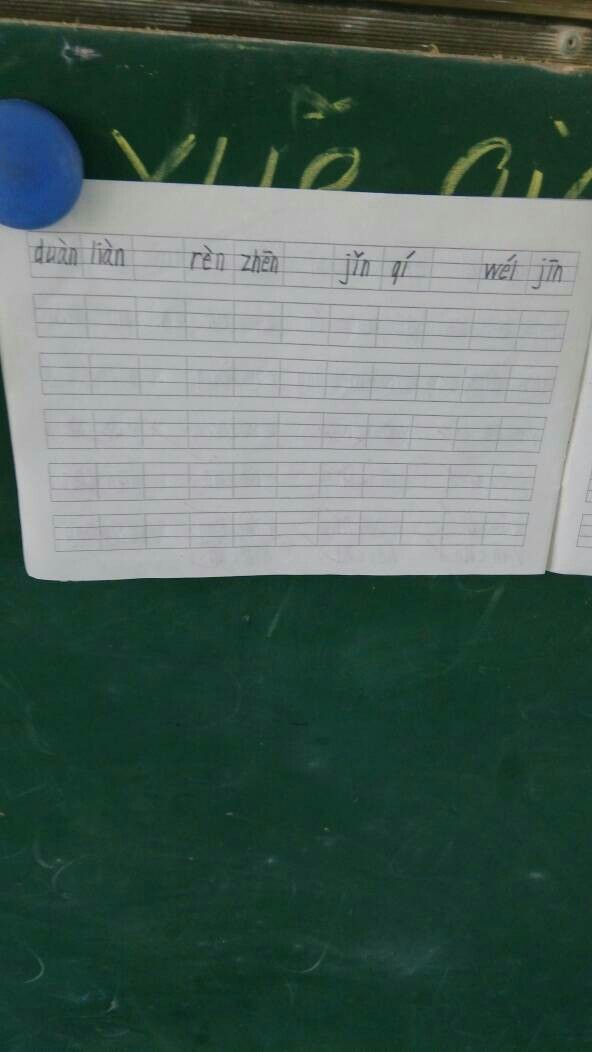 xuě
duàn liàn rèn zhēn jǐn qí wéi jīn